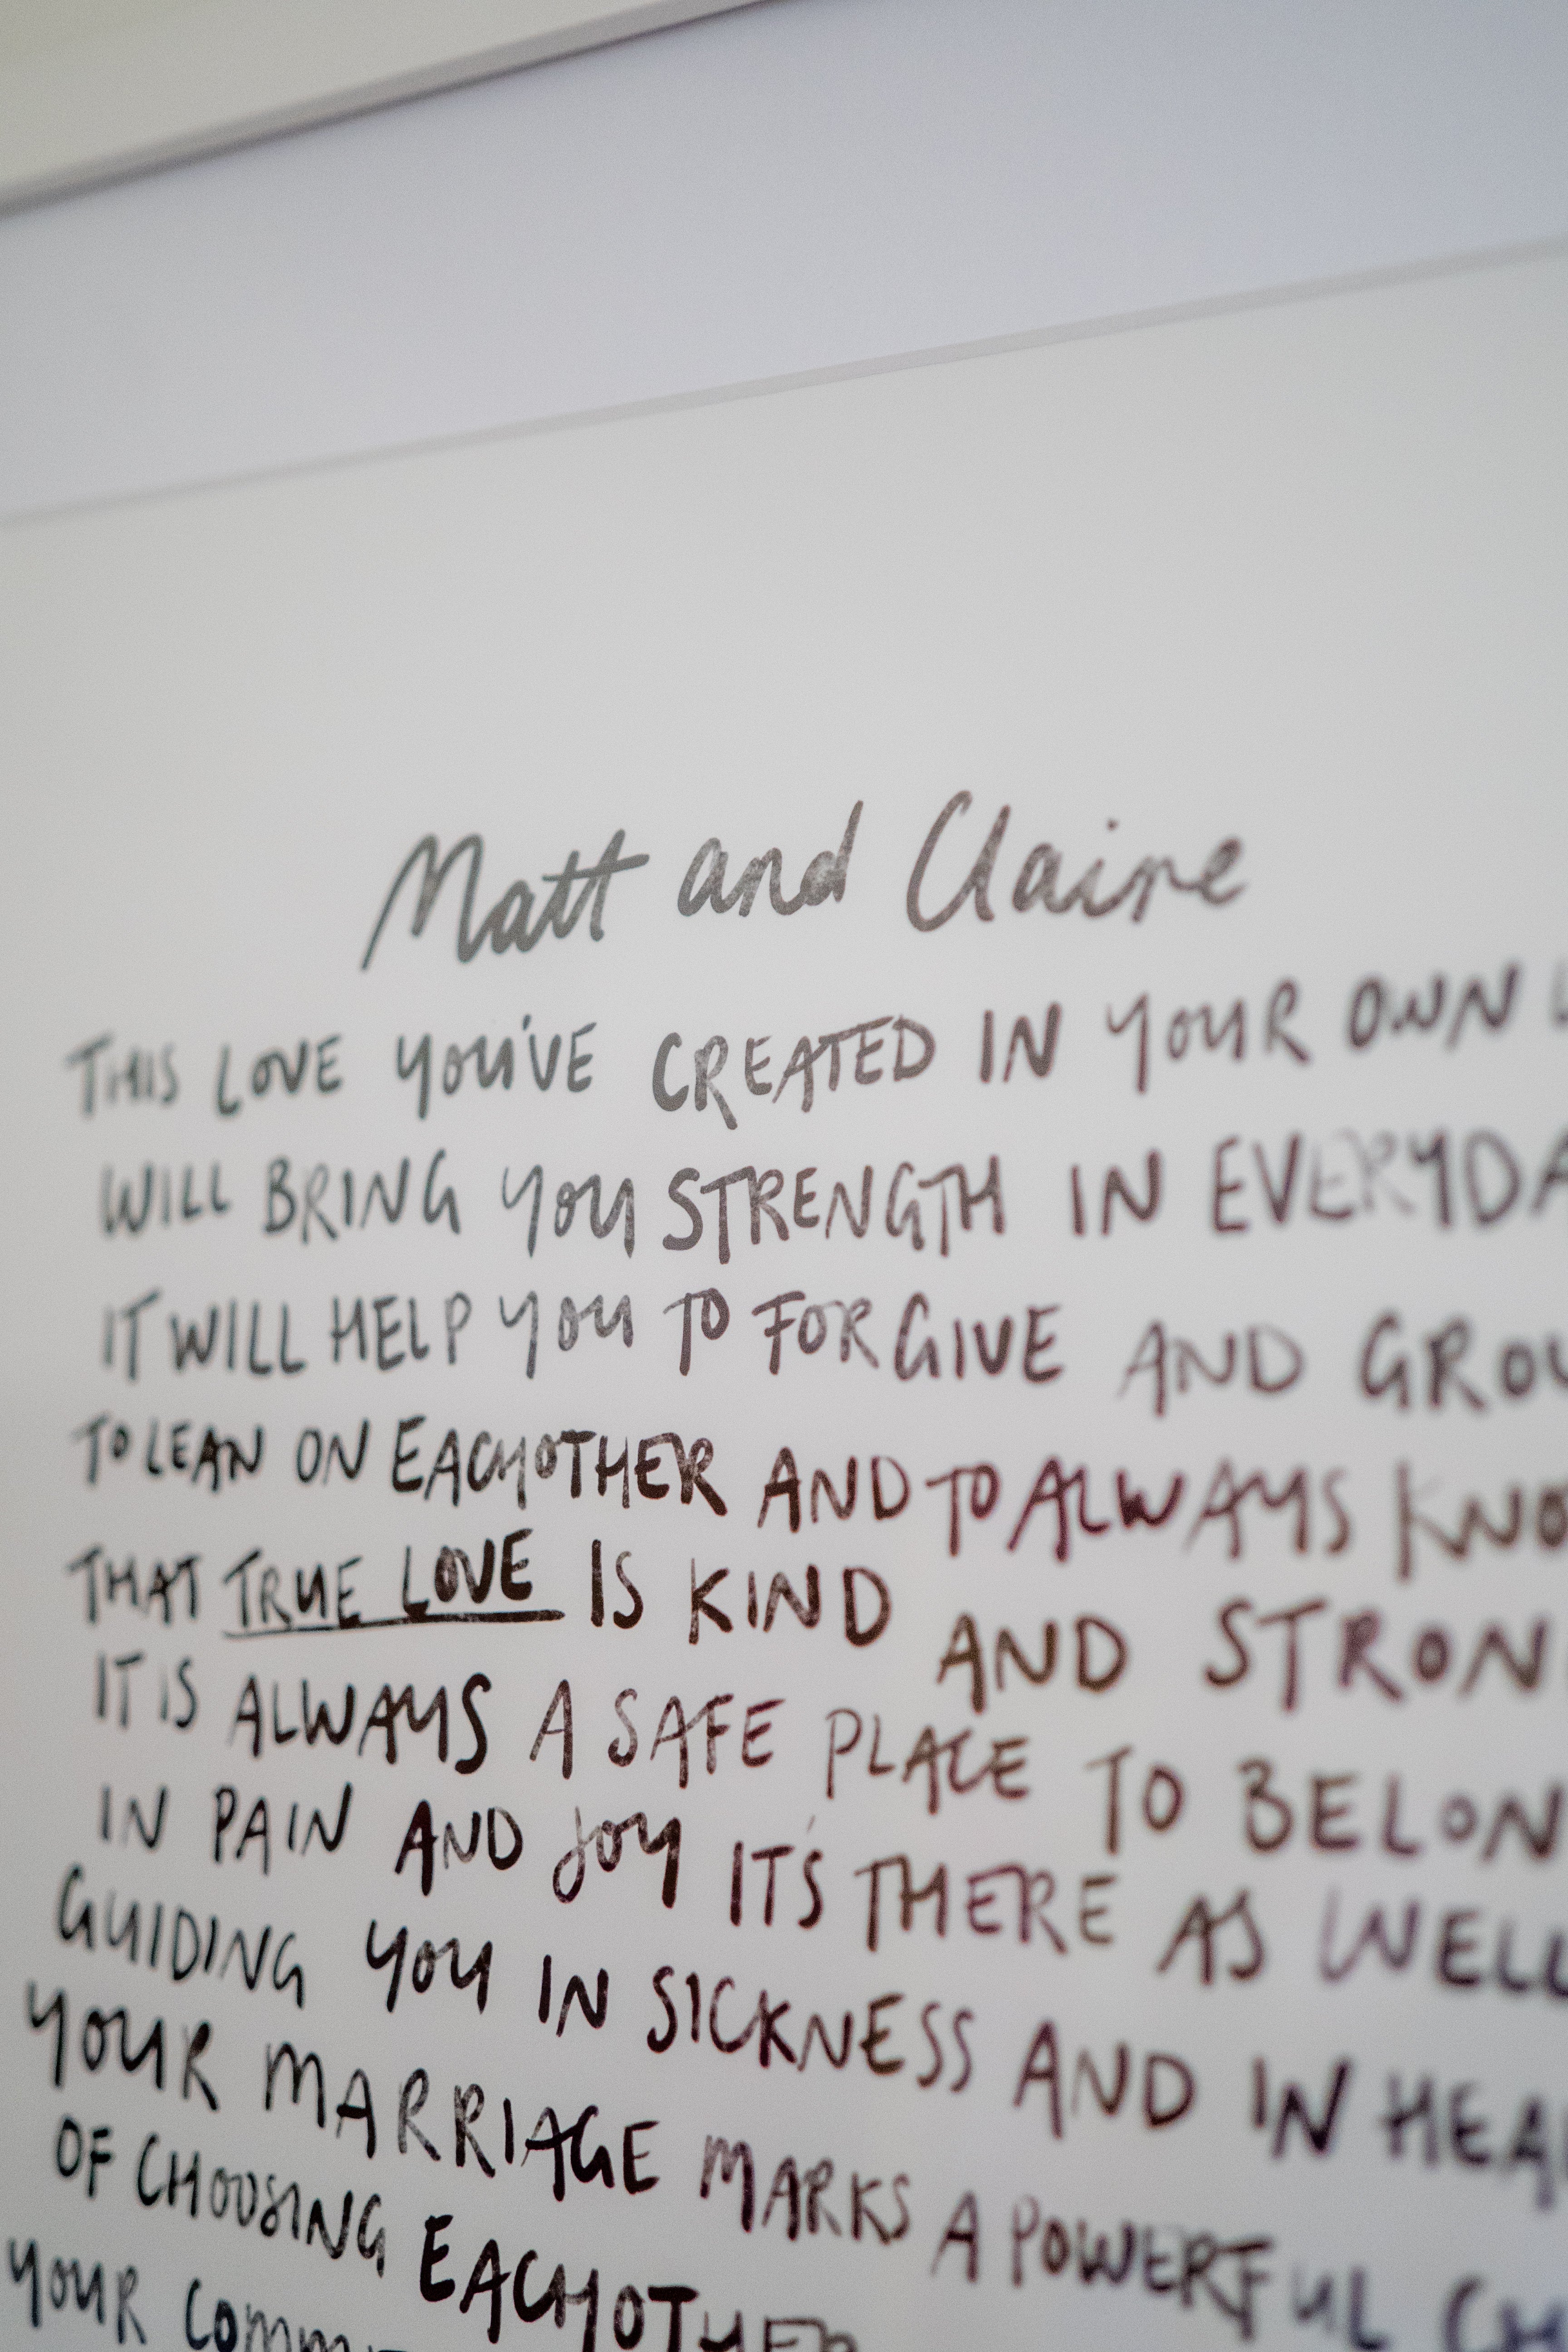 Matt and Claire
THIS LOVE YOU'VE CREATED IN YOUR OWN
WILL BRING YOU STRENGTH IN EVERYDA
IT WILL HELP YOU TO FORGIVE AND GROW
TO LEAN ON EACHOTHER AND TO ALWAYS KNO
THAT TRUE LOVE IS KIND AND STRON
IT IS ALWAYS A SAFE PLACE TO BELON
IN PAIN AND JOY IT'S THERE AS WELL
GUIDING YOU IN SICKNESS AND IN HEA
YOUR MARRIAGE MARKS A POWERFUL CH
OF CHOOSING EACHOTHER
YOUR COMM